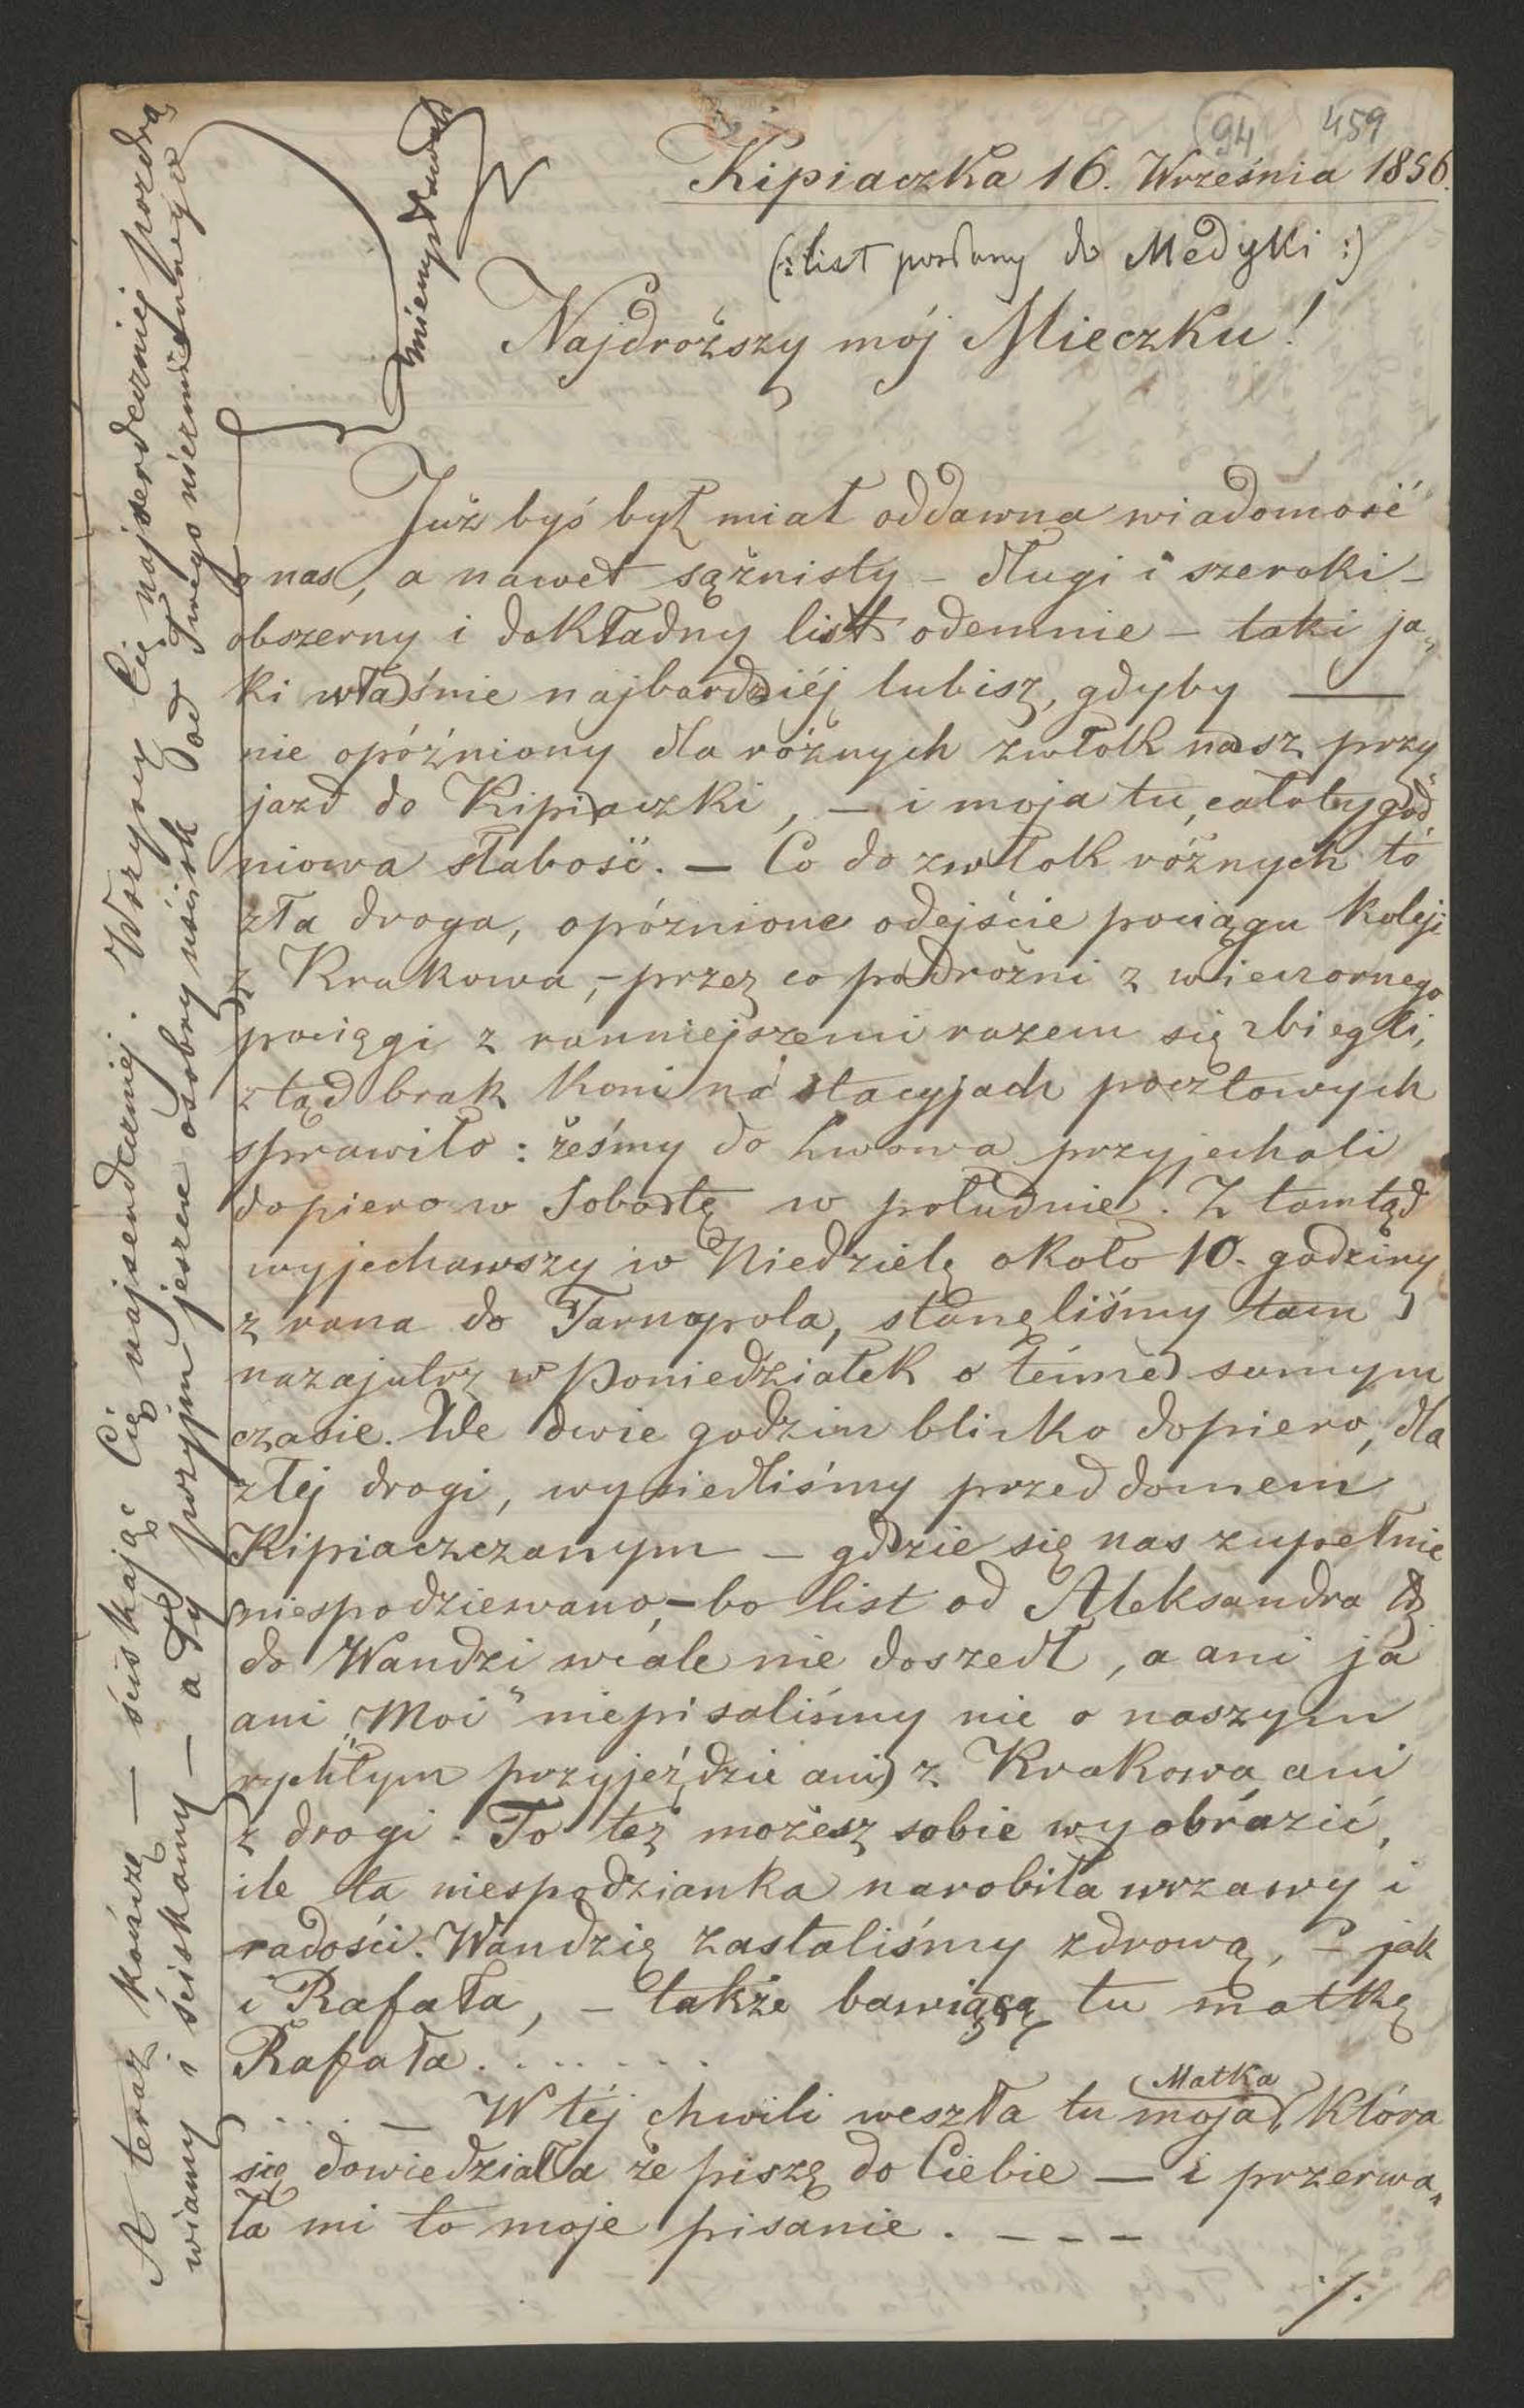 94 459
Kipiaczka 16. Września 1856.
(: list posłany do Medyki :)
Najdroższy mój Mieczku!
Już byś był miał oddawna wiadomość
o nas, a nawet sążnisty – długi i szeroki –
obszerny i dokładny list odemnie – taki ja„
ki właśnie najbardziéj lubisz, gdyby —
nie opóźniony dla różnych zwłok nasz przy„
jazd do Kipiaczki, – i moja tu, całotygod„
niowa słabość. – Co do zwłok różnych to
zła droga, opóźnione odejście pociągu koleji
z Krakowa, – przez co podróżni z wieczornego
pociągi z ranniejszemi razem się zbiegli,
ztąd brak koni na stacyjach pocztowych
sprawiło: żeśmy do Lwowa przyjechali
dopiero w Sobotę w południe. Z tamtąd
wyjechawszy w Niedzielę około 10. godziny
z rana do Tarnopola, stanęliśmy tam
nazajutrz w Poniedziałek o témże samym
czasie. We dwie godzin blisko dopiero, dla
złej drogi, wysiedliśmy przed domem
Kipiaczczanym – gdzie się nas zupełnie
niespodziewano, – bo list od Aleksandra
do Wandzi wcale nie doszedł, a ani ja
ani „Moi" niepisaliśmy nic o naszym
rychłym przyjeździe ani z Krakowa ani
z drogi. To też możesz sobie wyobrazić,
ile ta niespodzianka narobiła wrzawy i
radości. Wandzię zastaliśmy zdrową, – jak
i Rafała, – także bawiącą tu matkę
Rafała. . . . . . .
. . . . – W téj chwili weszła tu moja Matka, która
się dowiedziała że piszę do Ciebie — i przerwa„
ła mi to moje pisanie. – – –
./.
A teraz kończę — ściskając Cię najserdeczniej. Wszyscy Cię najserdeczniej pozdra
wiamy i ściskamy — a Ty przyjm jeszcze osobny uścisk od Twego niezmiennego